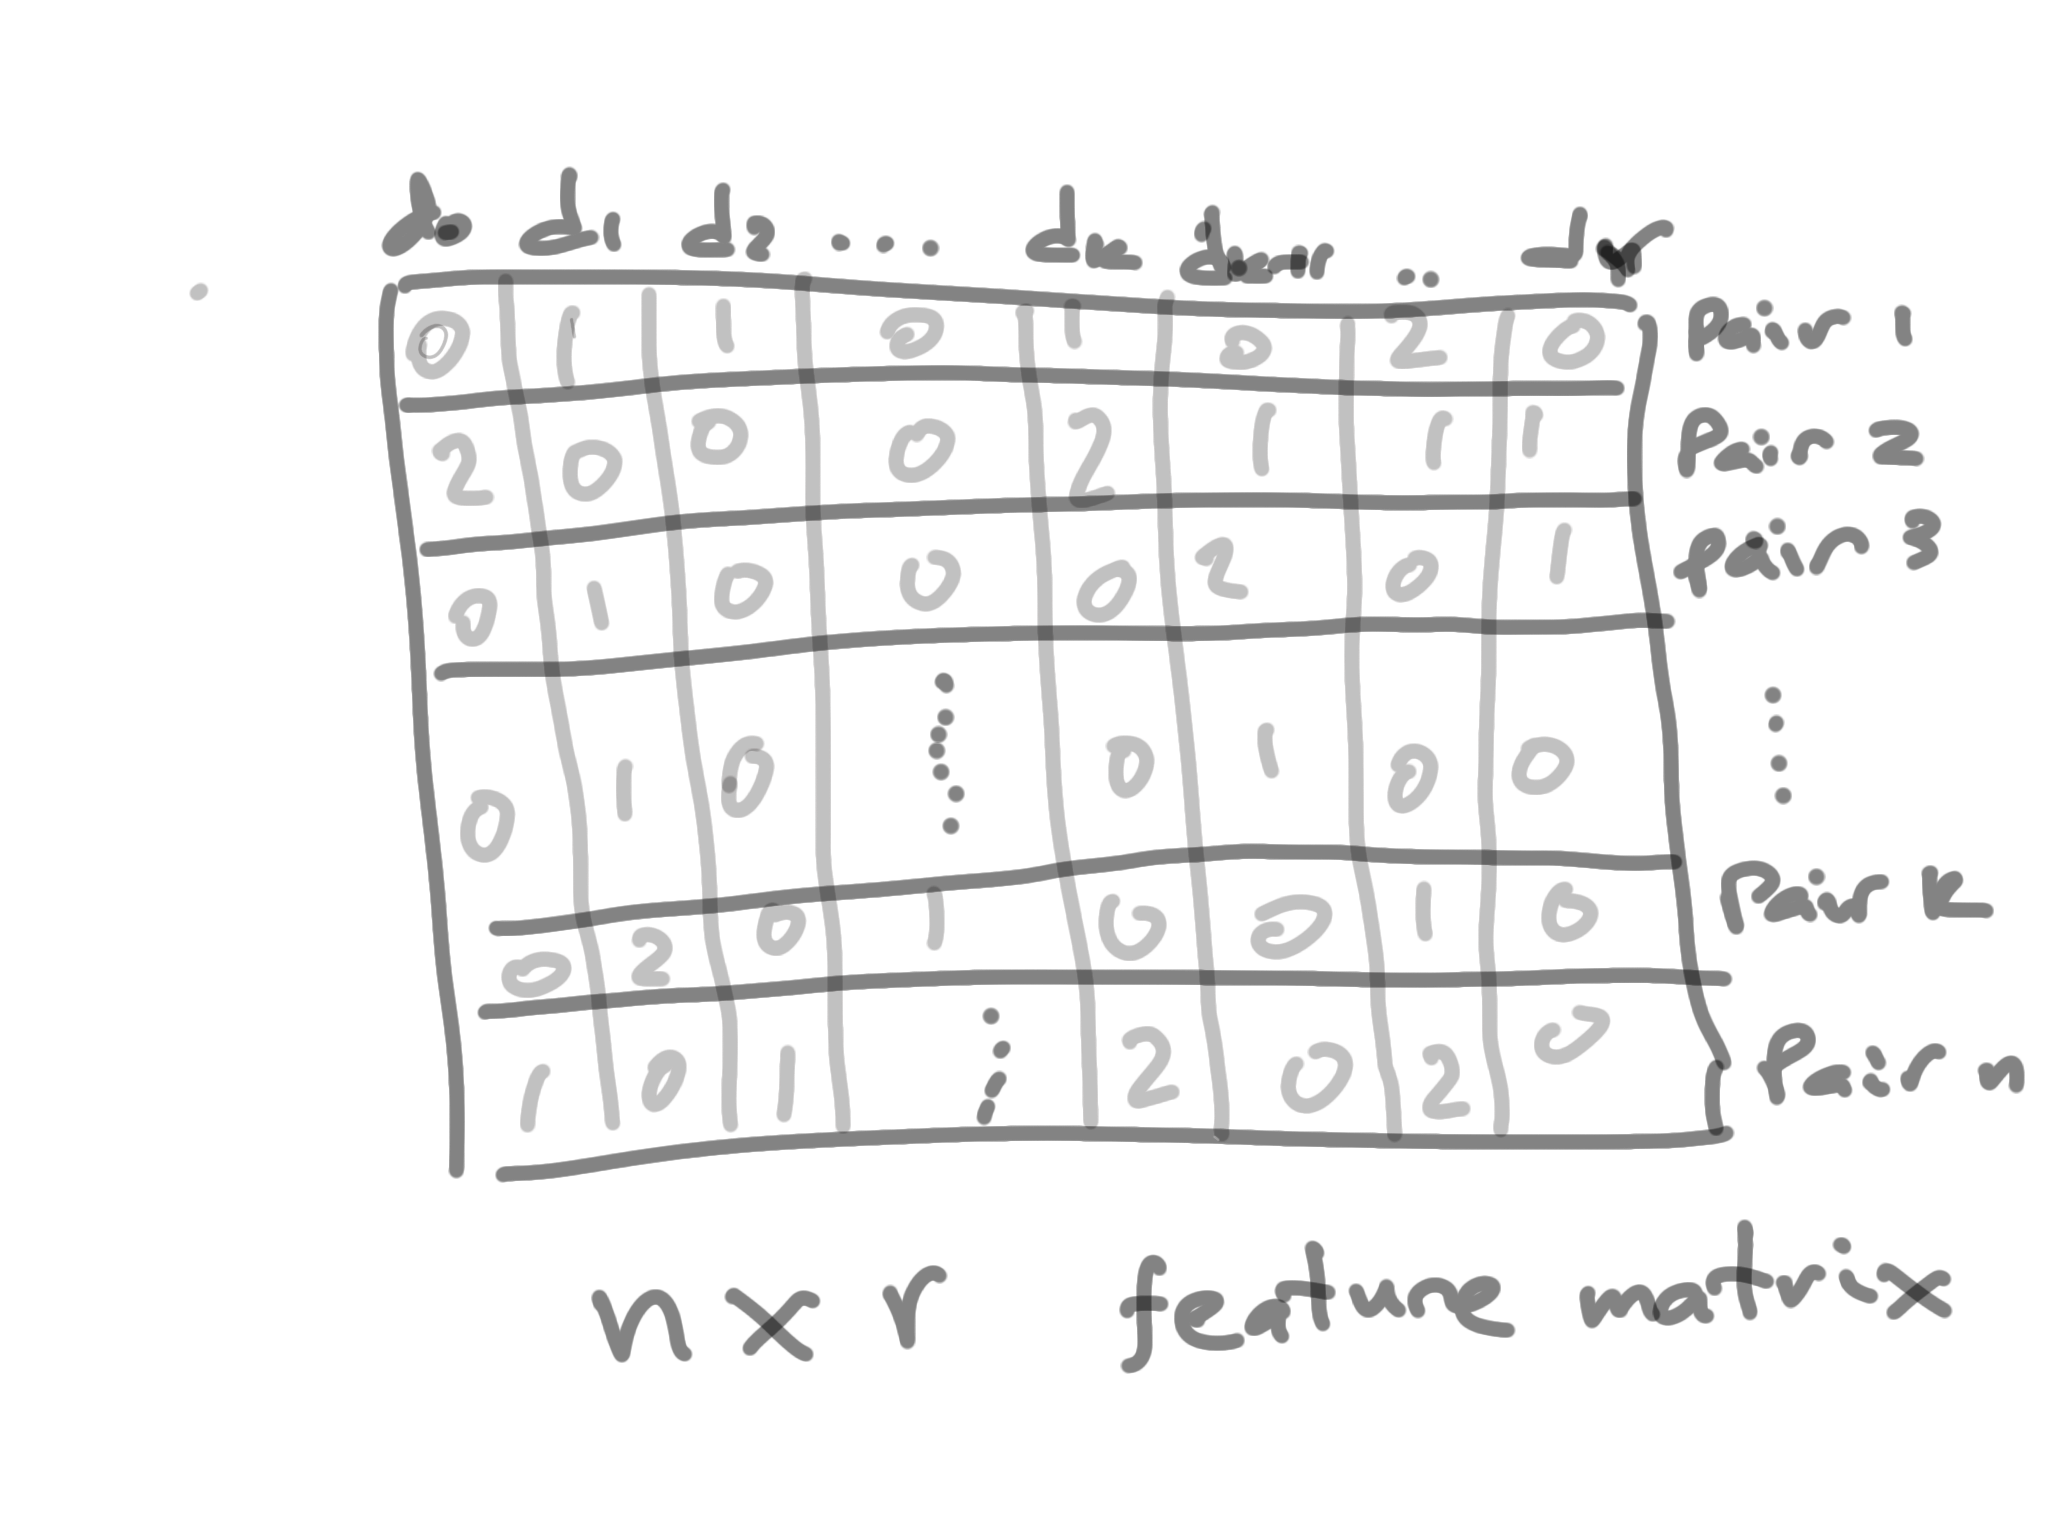 d0 d1 d2 .... dk dk+1 .. dr
0 1 1 0 1 0 2 0 Pair 1
2 0 0 0 2 1 1 1 Pair 2
0 1 0 0 0 2 0 1 Pair 3
0 1 0 0 1 0 0
0 2 0 1 0 0 1 0 Pair k
1 0 1 2 0 2 0 Pair n
n x r feature matrix